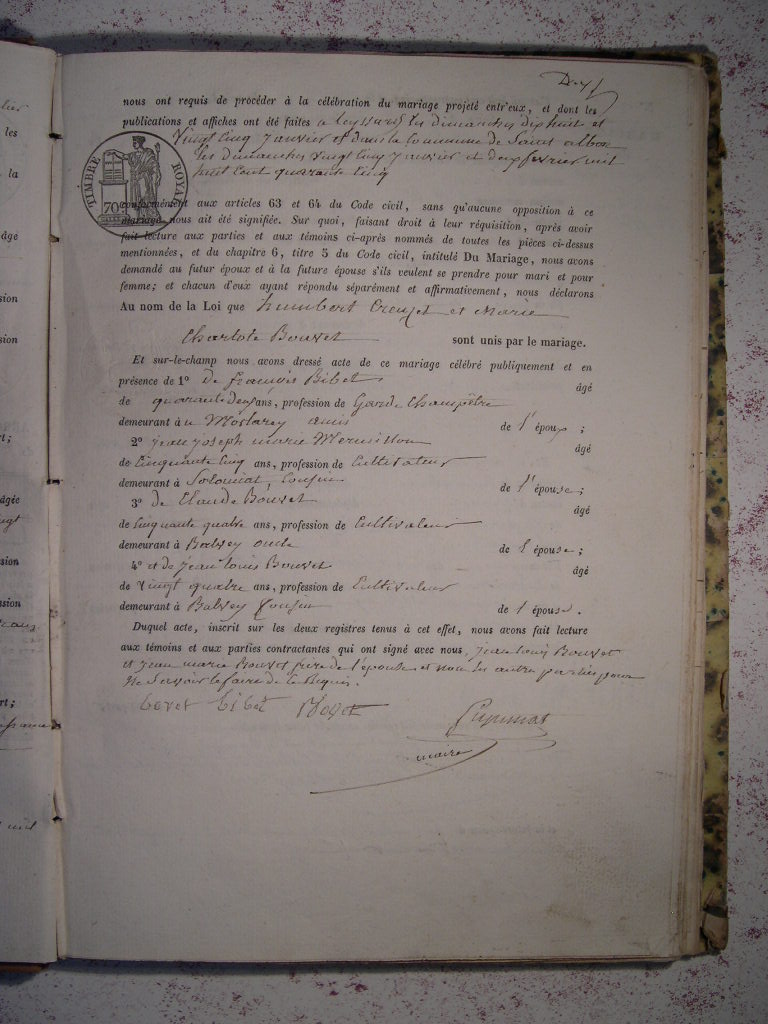 nous ont requis de procéder à la célébration du mariage projeté entr'eux, et dont les
publications et affiches ont été faites a Leyssard les dimanches dix huit et
Vingt Cinq Janvier et dans la Commune de Saint alban
les dimanches vingt Cinq Janvier et deux fevrier mil
huit Cent quarante Cinq
TIMBRE ROYAL
70
conformément aux articles 63 et 64 du Code civil, sans qu'aucune opposition à ce
mariage nous ait été signifiée. Sur quoi, faisant droit à leur réquisition, après avoir
fait lecture aux parties et aux témoins ci-après nommés de toutes les pièces ci-dessus
mentionnées, et du chapitre 6, titre 5 du Code cicil, intitulé Du Mariage, nous avons
demandé au futur époux et à la future épouse s'ils veulent se prendre pour mari et pour
femme; et chacun d'eux ayant répondu séparément et affirmativement, nous déclarons
Au nom de la Loi que humbert Creuzet et Marie
Charlote Bouvet sont unis par le mariage.
Et sur-le-champ nous avons dressé acte de ce mariage célébré publiquement et en
présence de 1° de françois Bibet âgé
de quarante deux ans, profession de Garde Champêtre
demeurant à amis de l'époux ;
2° jean joseph marie Mermillon âgé
de Cinquante Cinq ans, profession de Cultivateur
demeurant à Solomiat, Cousin de l'épouse;
3° de Claude Bouvet âgé
de Cinquante quatre ans, profession de Cultivateur
demeurant à Balvey oncle de l'épouse;
4° et de jean louis Bouvet âgé
de Vingt quatre ans, profession de Cultivateur
demeurant à Balvey Cousin de l'épouse.
Duquel acte, inscrit sur les deux registres tenus à cet effet, nous avons fait lecture
aux témoins et aux parties contractantes qui ont signé avec nous, jean louis Bouvet
et jean marie Bouvet frere de l'épouse et non les autre parties pour
Ne Savoir le faire de ce Requis.
Bibet
maire